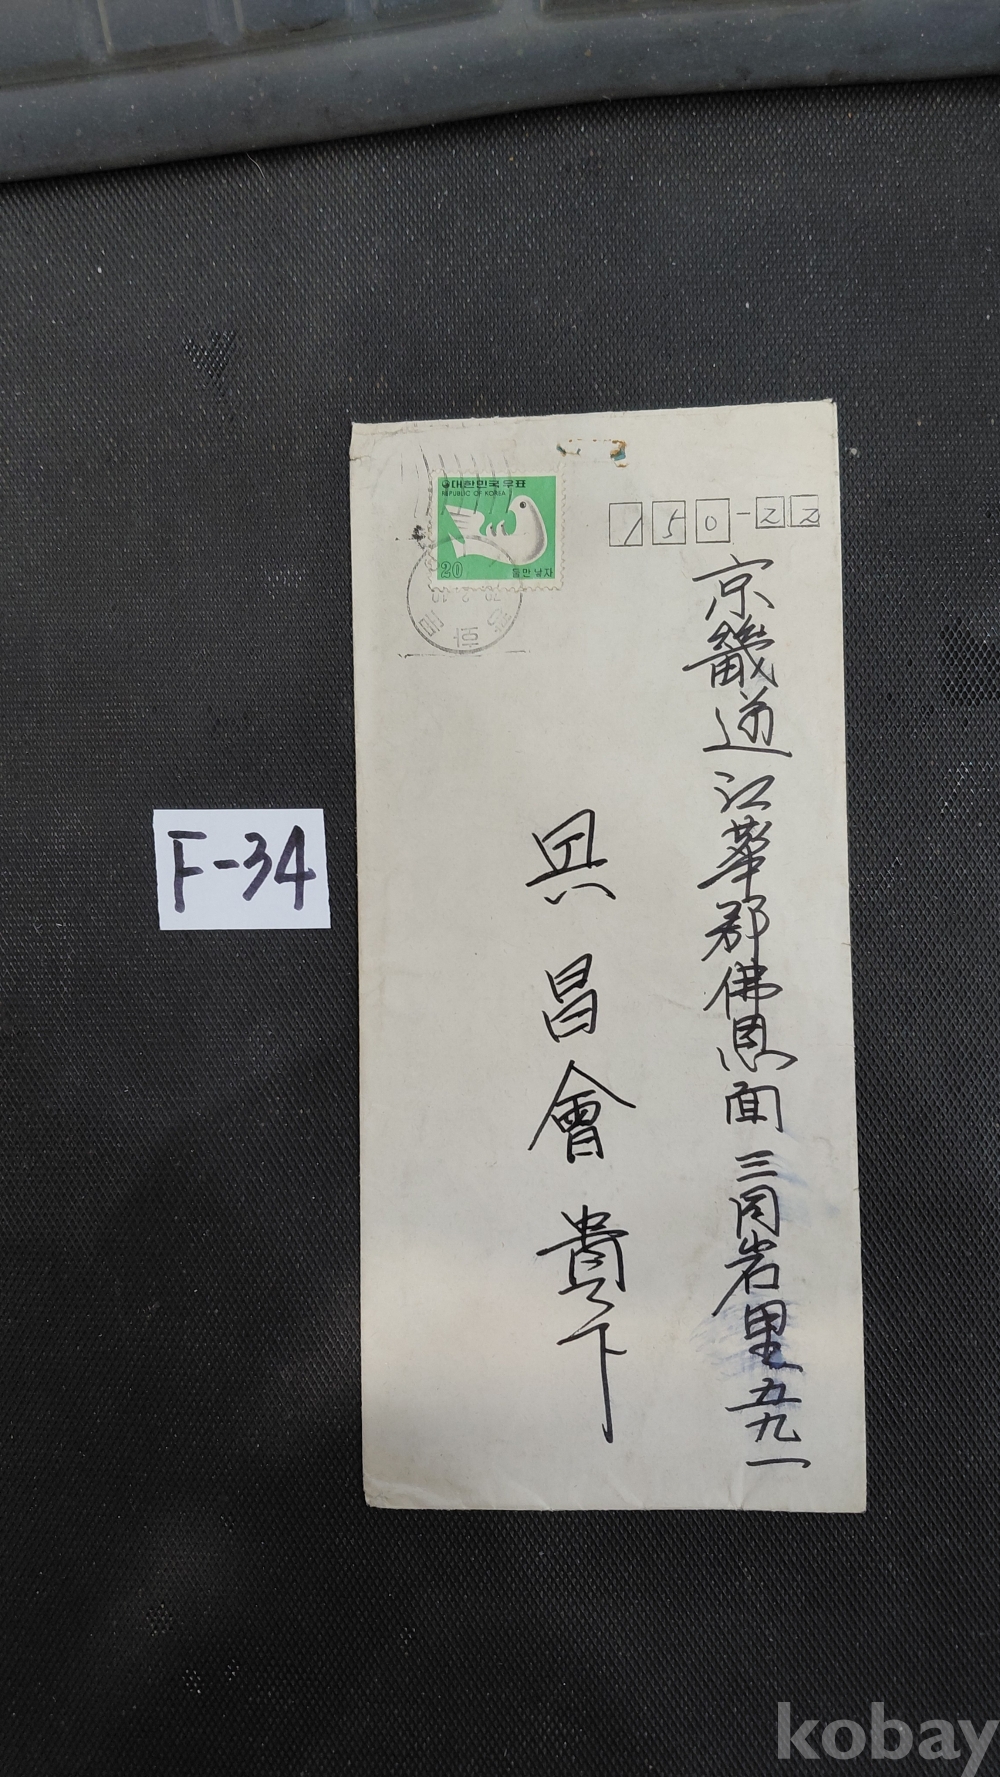 대한민국우표
REPUBLIC OF KOREA
20
둘만 낳자
79.2.10
150-22
京畿道江華郡佛恩面三同岩里五九一
具昌會貴下
F-34
kobay